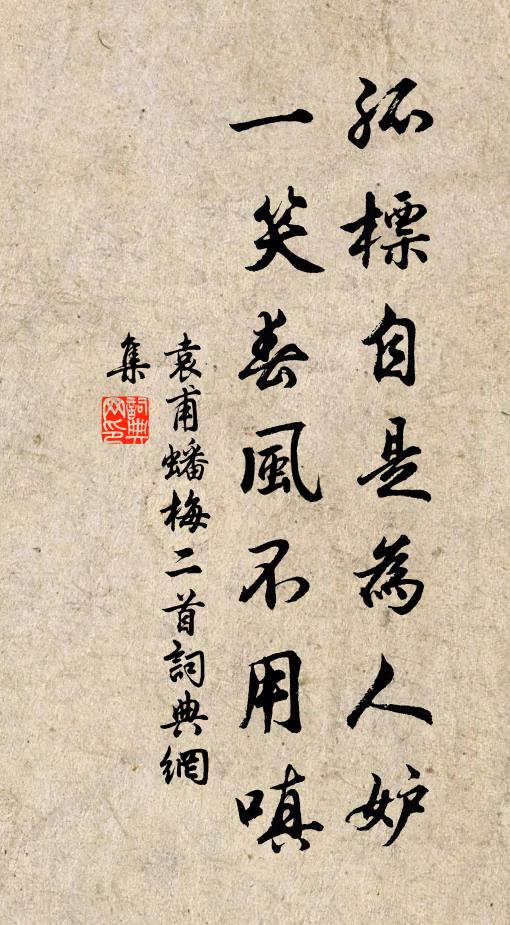 孤標自是為人妒
一笑春風不用嗔
袁甫蟠梅二首詞典網
集
詞典
网印